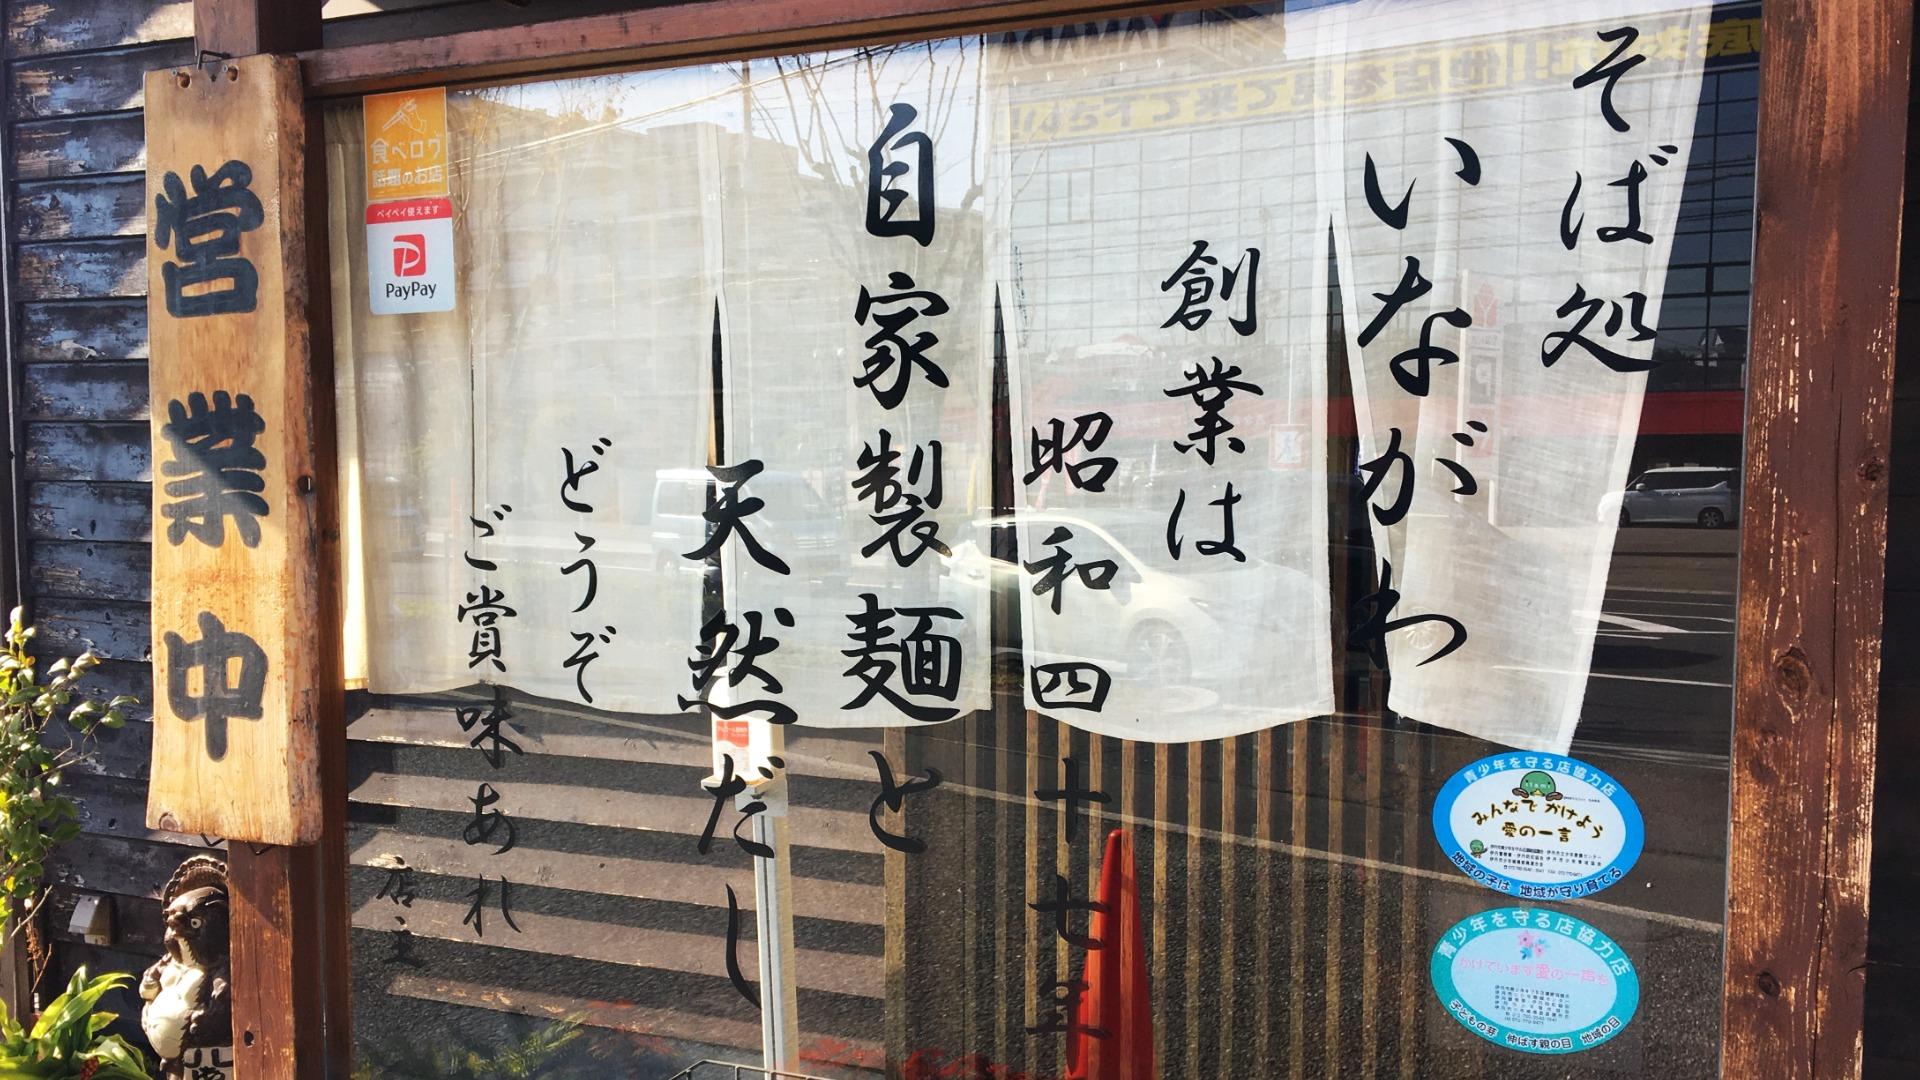 そば処
いながわ
創業は
昭和四十七年
自家製麺と
天然だし
どうぞ
ご賞味あれ
店主
営業中
食べログ
話題のお店
ペイペイ使えます
PayPay
YAMADA
他店を見て来て下さい!!
青少年を守る店協力店
みんなでかけよう
愛の一言
地域の子は 地域が守り育てる
青少年を守る店協力店
かけています愛の一声を
子どもの芽 伸ばす親の目 地域の目